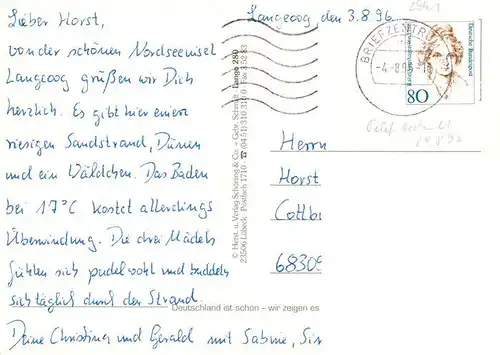 Lieber Horst,
von der schönen Nordseeinsel
Langeoog grüßen wir Dich
herzlich. Es gibt hier einen
riesigen Sandstrand, Dünen
und ein Wäldchen. Das Baden
bei 17°C kostet allerdings
Überwindung. Die drei Mädels
fühlen sich pudelwohl und buddeln
sich täglich durch den Strand.
Deine Christina und Gerald mit Sabine, Sim
Deutschland ist schön – wir zeigen es
© Herst. u. Verlag Schöning & Co. + Gebr. Schmidt
23506 Lübeck · Postfach 1710 · ☎ (04 51) 310 31 20
Lange 280
Langeoog, den 3.8.96
BRIEFZENTRUM
-4.-8.96
Deutsche Bundespost
80
Herrn
Horst
Cottbu
68309